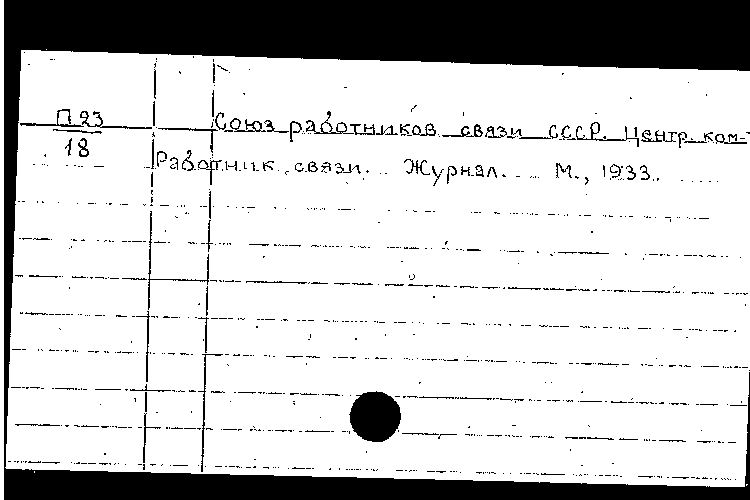 П 23
18
Союз работников связи СССР. Центр. ком-т
Работник связи. Журнал. М., 1933.